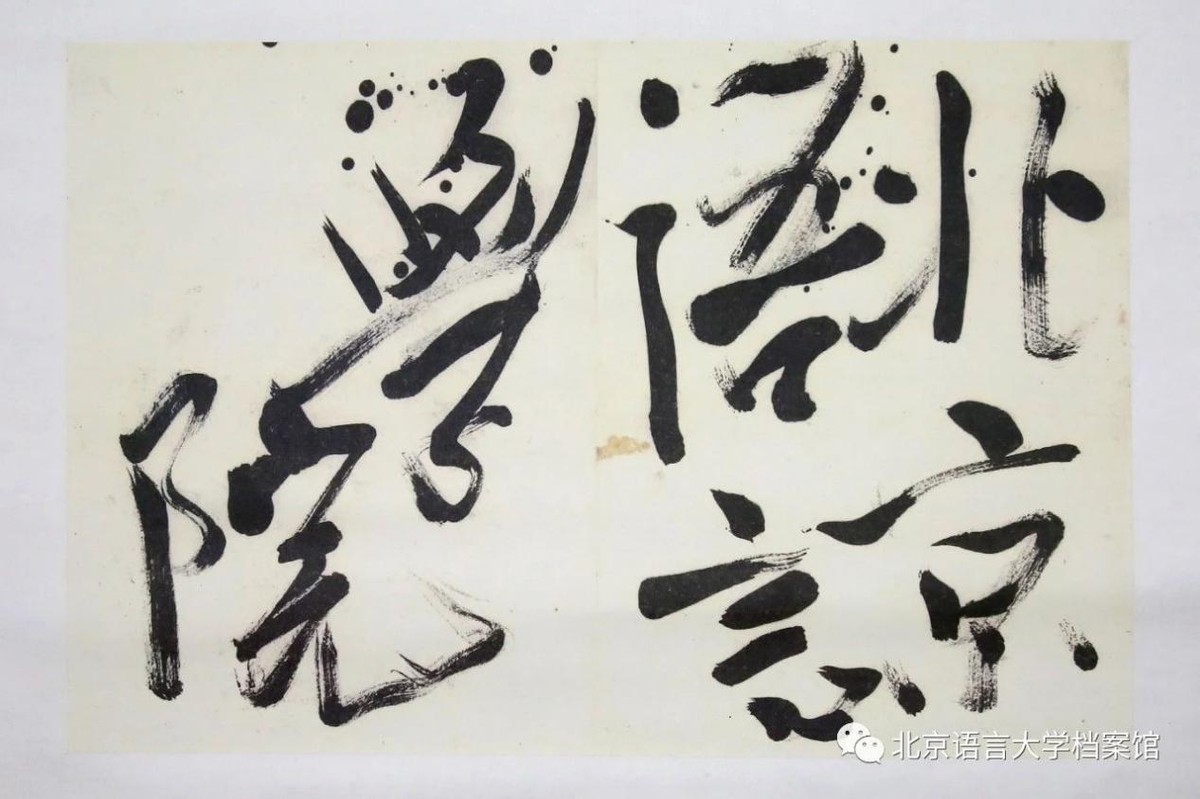 北京
語言
學院
北京语言大学档案馆